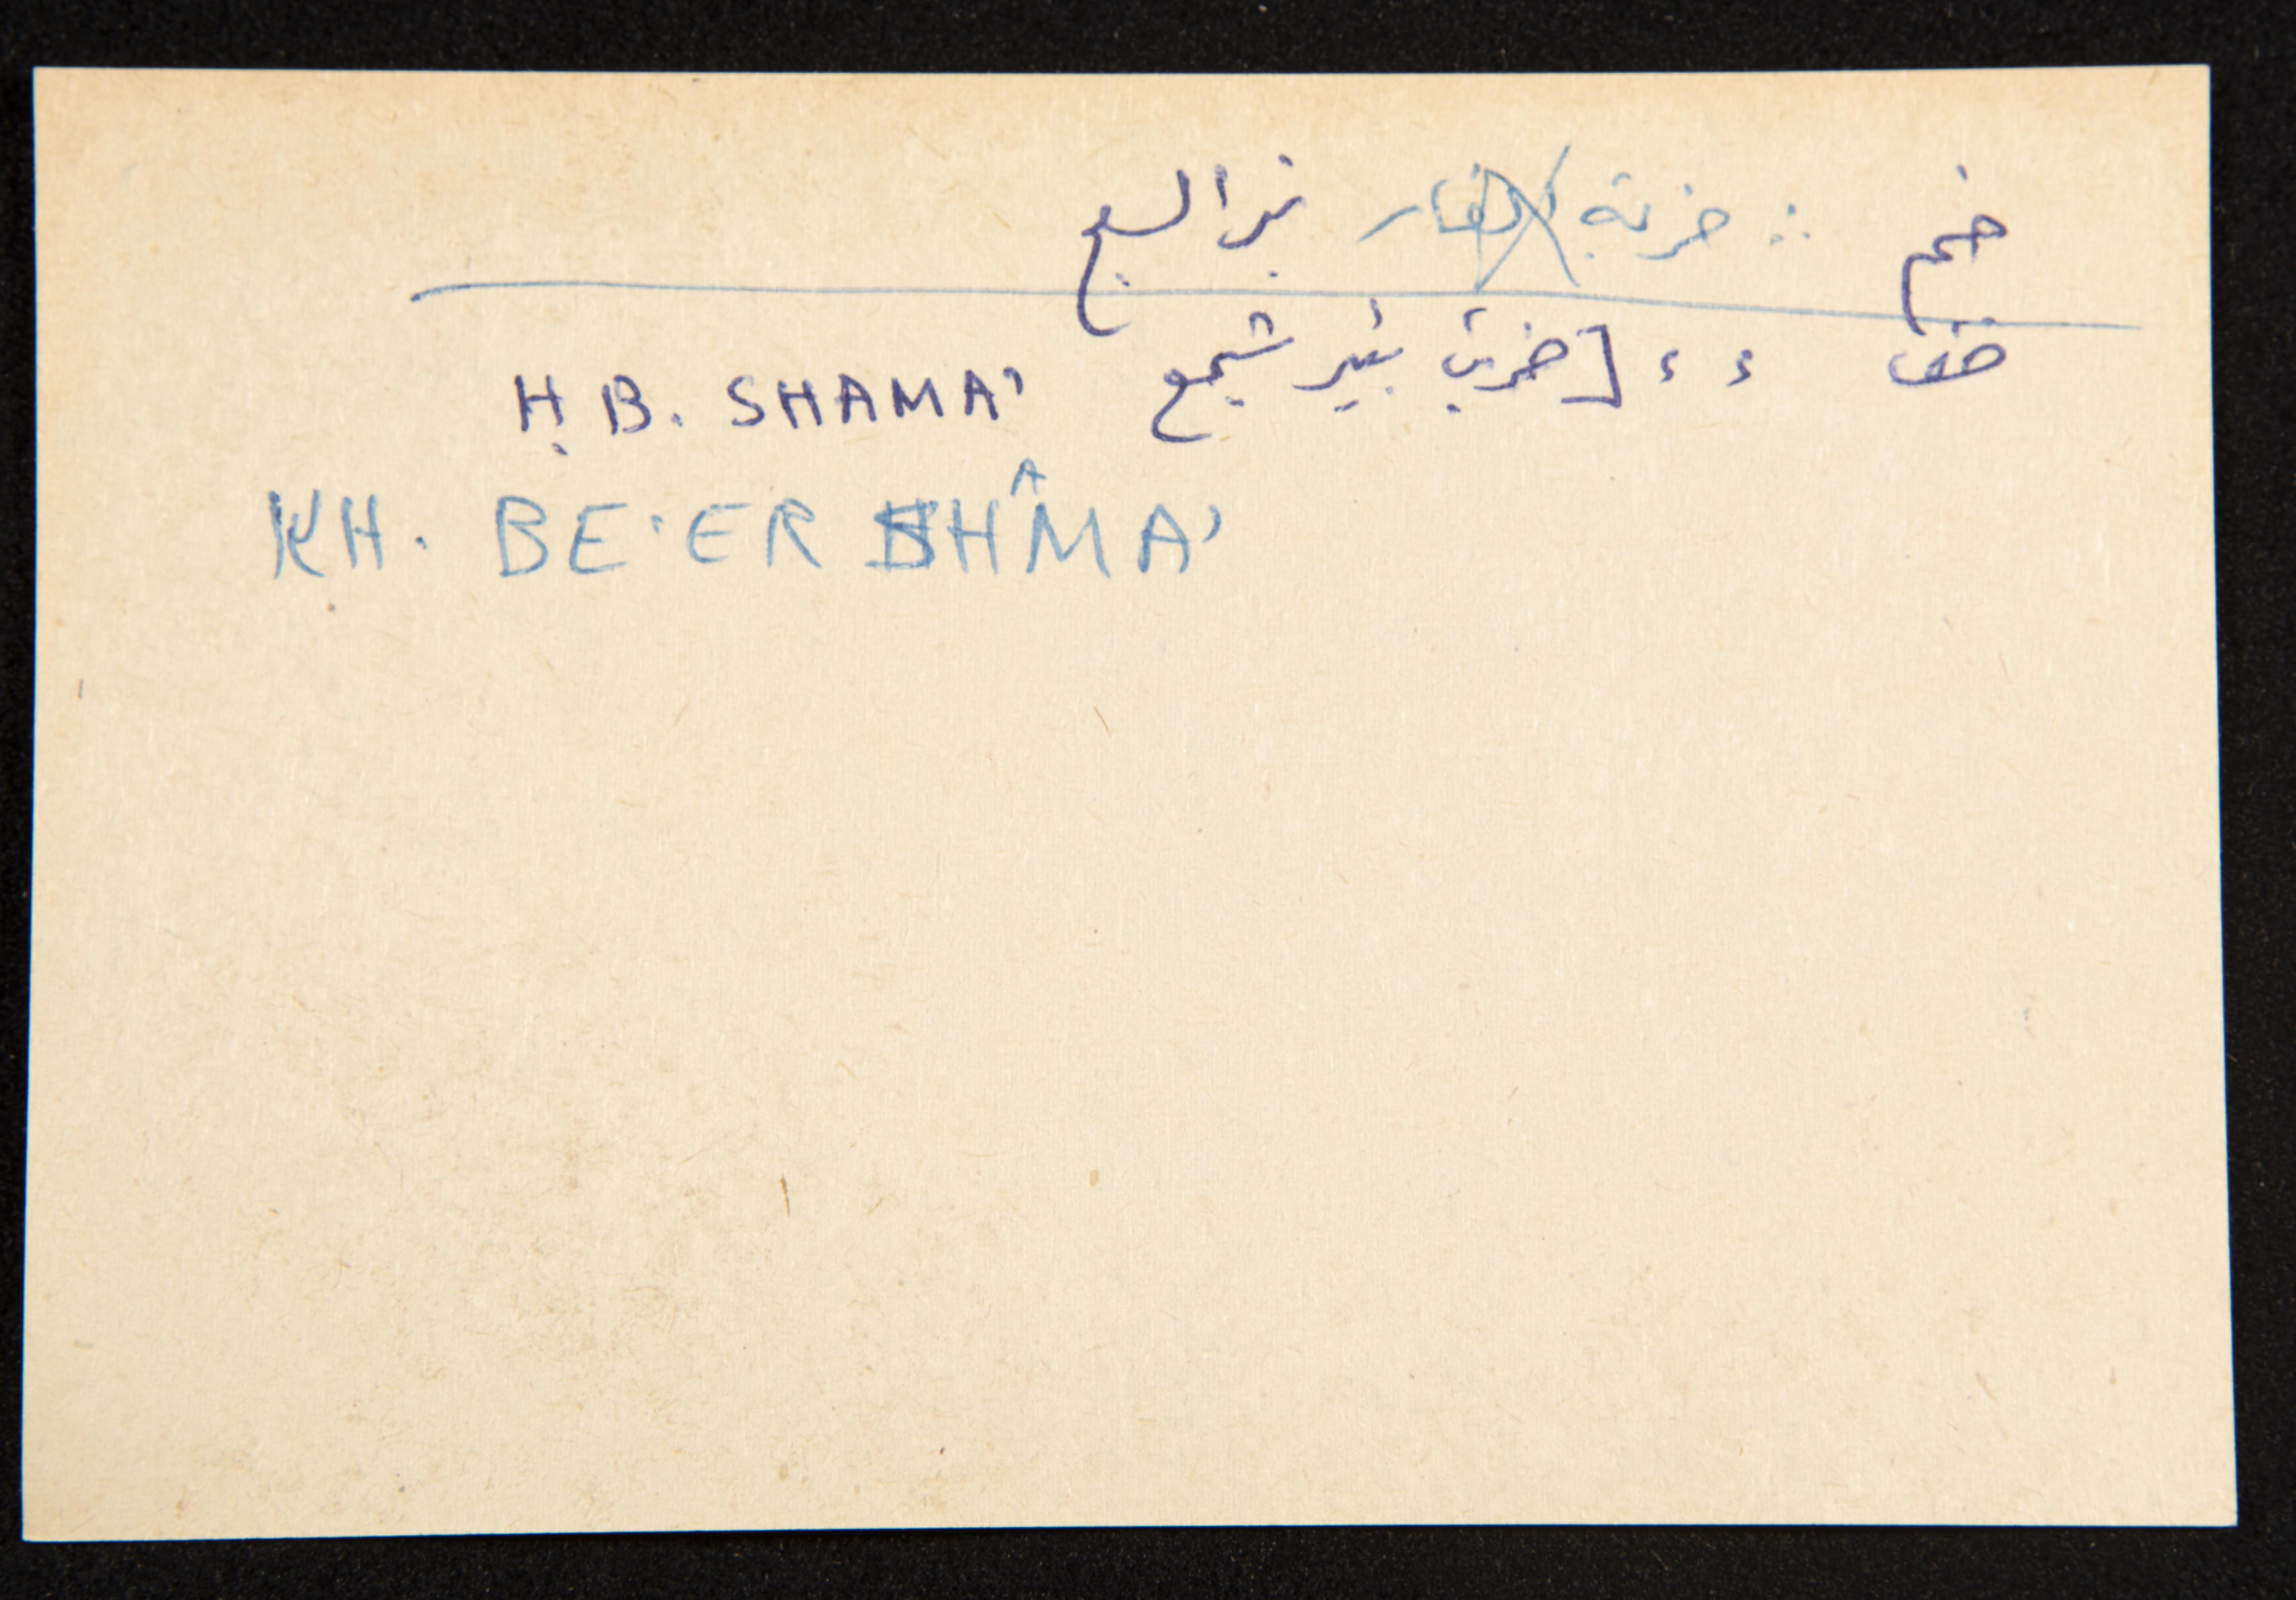 خم ∴ خربة الفار بئر السبع
خف ، ، [خربة بئير شمع H.B. SHAMA'
KH. BE'ER SHAMA'